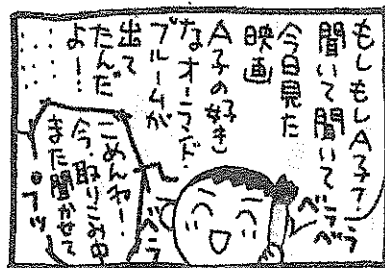 もしもしA子?
聞いて聞いて
今日見た
映画
A子の好き
なオーランド・
ブルームが
出て
たんだ
よー!
……
……
ベラベラ
ベラ
ごめんねー!
今、取りこみ中
また聞かせて
プッ